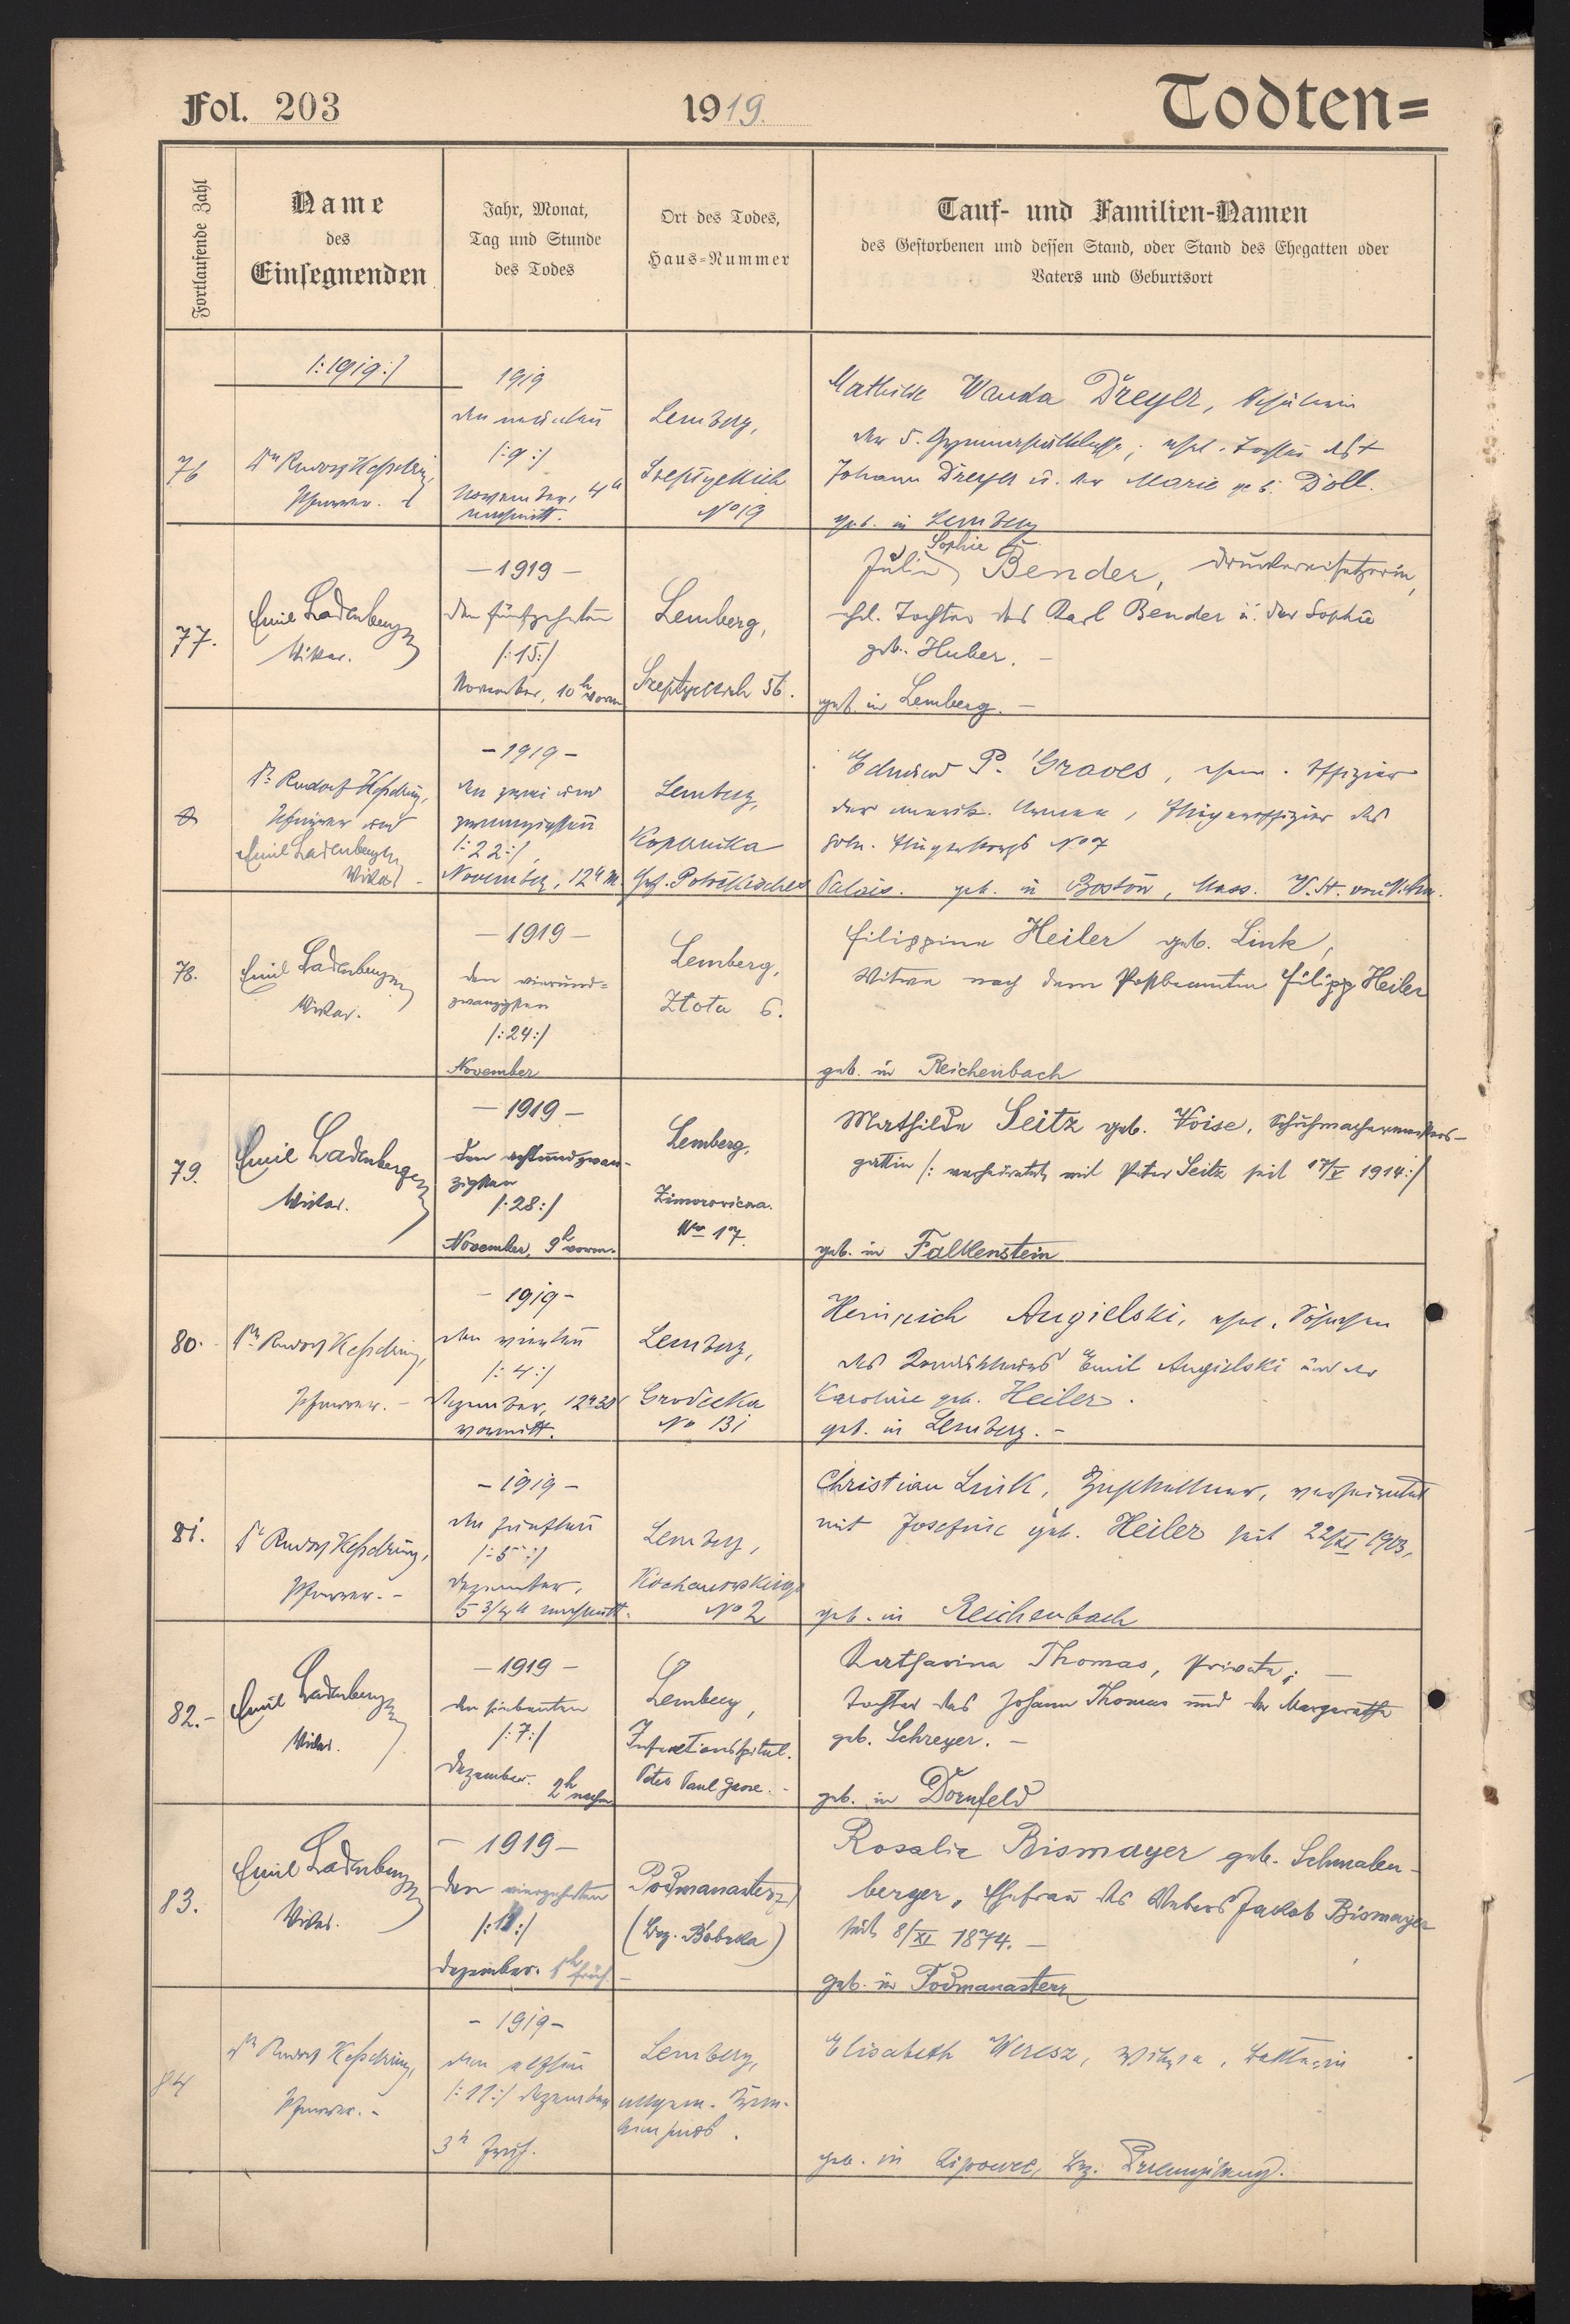 Fol. 203
1919.
Todten=
Fortlaufende Zahl
Name
des
Einsegnenden
Jahr, Monat,
Tag und Stunde
des Todes
Ort des Todes,
Haus-Nummer
Tauf- und Familien-Namen
des Gestorbenen und dessen Stand, oder Stand des Ehegatten oder
Vaters und Geburtsort
/:1919:/
76
Dr Rudolf Kesselring,
Pfarrer.
1919
den neunten
/:9:/
November, 4h
nachmitt.
Lemberg,
Szeptyckich
No 19
Mathilde Wanda Dreyer, Schülerin
der 5. Gymnasialklasse, ehel. Tochter des +
Johann Dreyer u. der Marie geb. Doll.
geb. in Lemberg
77.
Emil Ladenberger
Vikar.
– 1919 –
den fünfzehnten
/:15:/
November, 10h vorm
Lemberg,
Szeptyckich 56.
Sophie
Julia Bender, Druckereisetzerin,
ehel. Tochter des Karl Bender u. der Sophie
geb. Huber. –
geb. in Lemberg. –
Dr Rudolf Kesselring,
Pfarrer und
Emil Ladenberger
Vikar
– 1919 –
den zwei und
zwanzigsten
/:22:/
November, 12h M.
Lemberg,
Kopernika
Graf. Potockisches
Edmund P. Graves, ehem. Offizier
der amerik. Armee, Fliegeroffizier des
poln. Fliegerkorps No 7
Palais. geb. in Boston, Mass. V. St. von N. Am.
78.
Emil Ladenberger
Vikar.
– 1919 –
den vierund=
zwanzigsten
/:24:/
November
Lemberg,
Złota 6.
Filippine Heiler geb. Link,
Witwe nach dem Postbeamten Filipp Heiler
geb. in Reichenbach
79.
Emil Ladenberger
Vikar.
– 1919 –
den achtundzwan-
zigsten
/:28:/
November, 9h vorm.
Lemberg,
Zimorowicza.
Nro 17.
Mathilde Seitz geb. Woise, Schuhmachermeisters-
gattin /: verheiratet mit Peter Seitz seit 17/V 1914:/
geb. in Falkenstein
80.
Dr Rudolf Kesselring,
Pfarrer. –
– 1919 –
den vierten
/:4:/
Dezember, 12h 30
vormitt.
Lemberg,
Grodecka
No 131
Heinrich Angielski, ehel. Söhnchen
des Emil Angielski und der
Karoline geb. Heiler.
geb. in Lemberg. –
81.
Dr Rudolf Kesselring,
Pfarrer. –
– 1919 –
den fünften
/:5:/
Dezember,
5 3/4 h nachmitt.
Lemberg,
Kochanowskiego
No 2
Christian Link, verheiratet
mit Josefine geb. Heiler seit 22/XI 1903,
geb. in Reichenbach
82. –
Emil Ladenberger
Vikar.
– 1919 –
den siebenten
/:7:/
Dezember. 2h nachm
Lemberg,
Infectionsspital.
Peter Paul Gasse. –
Katharina Thomas, Private; –
Tochter des Johann Thomas und der Margarethe
geb. Schreyer. –
geb. in Dornfeld
83.
Emil Ladenberger
Vikar.
– 1919 –
den
Dezember. 5h früh –
Podmanasterz
(Bez. Bobrka)
Rosalie Bismayer geb. Schmalen-
berger, Ehefrau des Webers Jakob Bismayer
seit 8/XI 1874. –
geb. in Podmanasterz
84
Dr Rudolf Kesselring,
Pfarrer. –
– 1919 –
den elften
/:11:/ Dezember
3h früh.
Lemberg,
allgem. Kran-
kenhaus.
Elisabeth Weresz, Witwe, Bettlerin
geb. in Lipowce, Bez. Przemyślany.